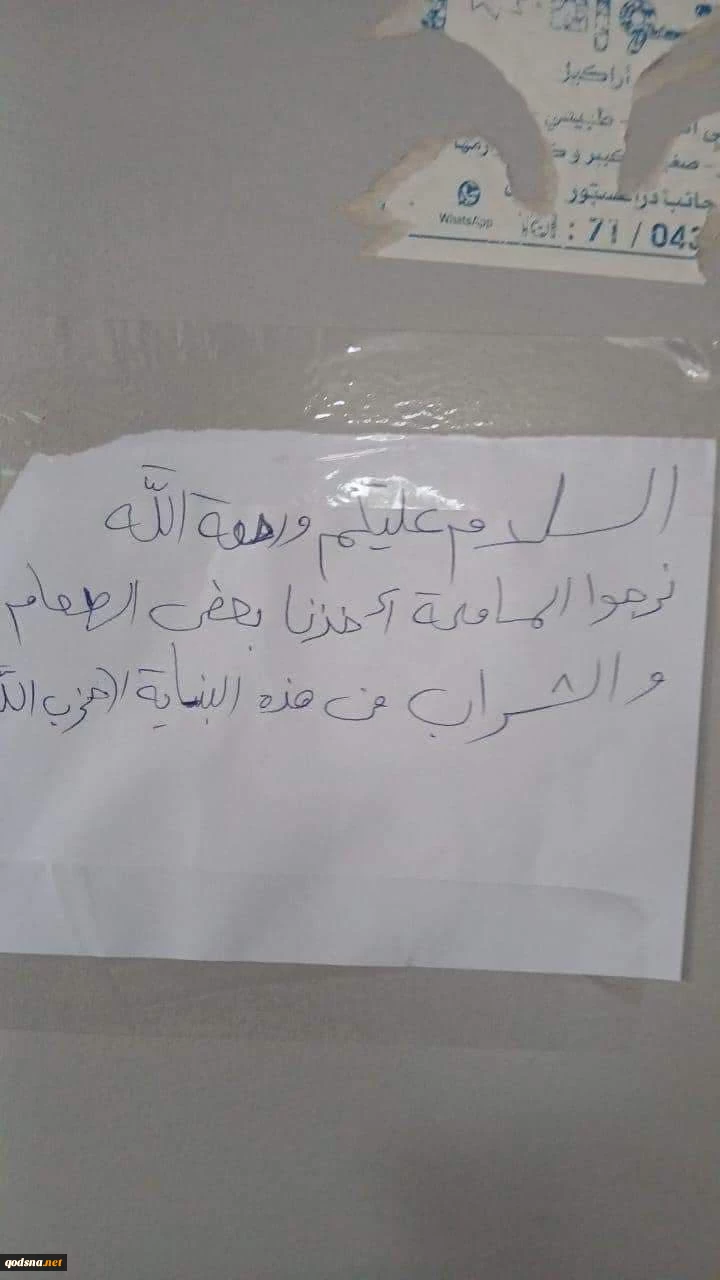 أراكيل
طبيس
جانب
WhatsApp
: 71 / 043
السلام عليكم ورحمة الله
نرجوا المسامحة أخذنا بعض الطعام
والشراب من هذه البناية
qodsna.net